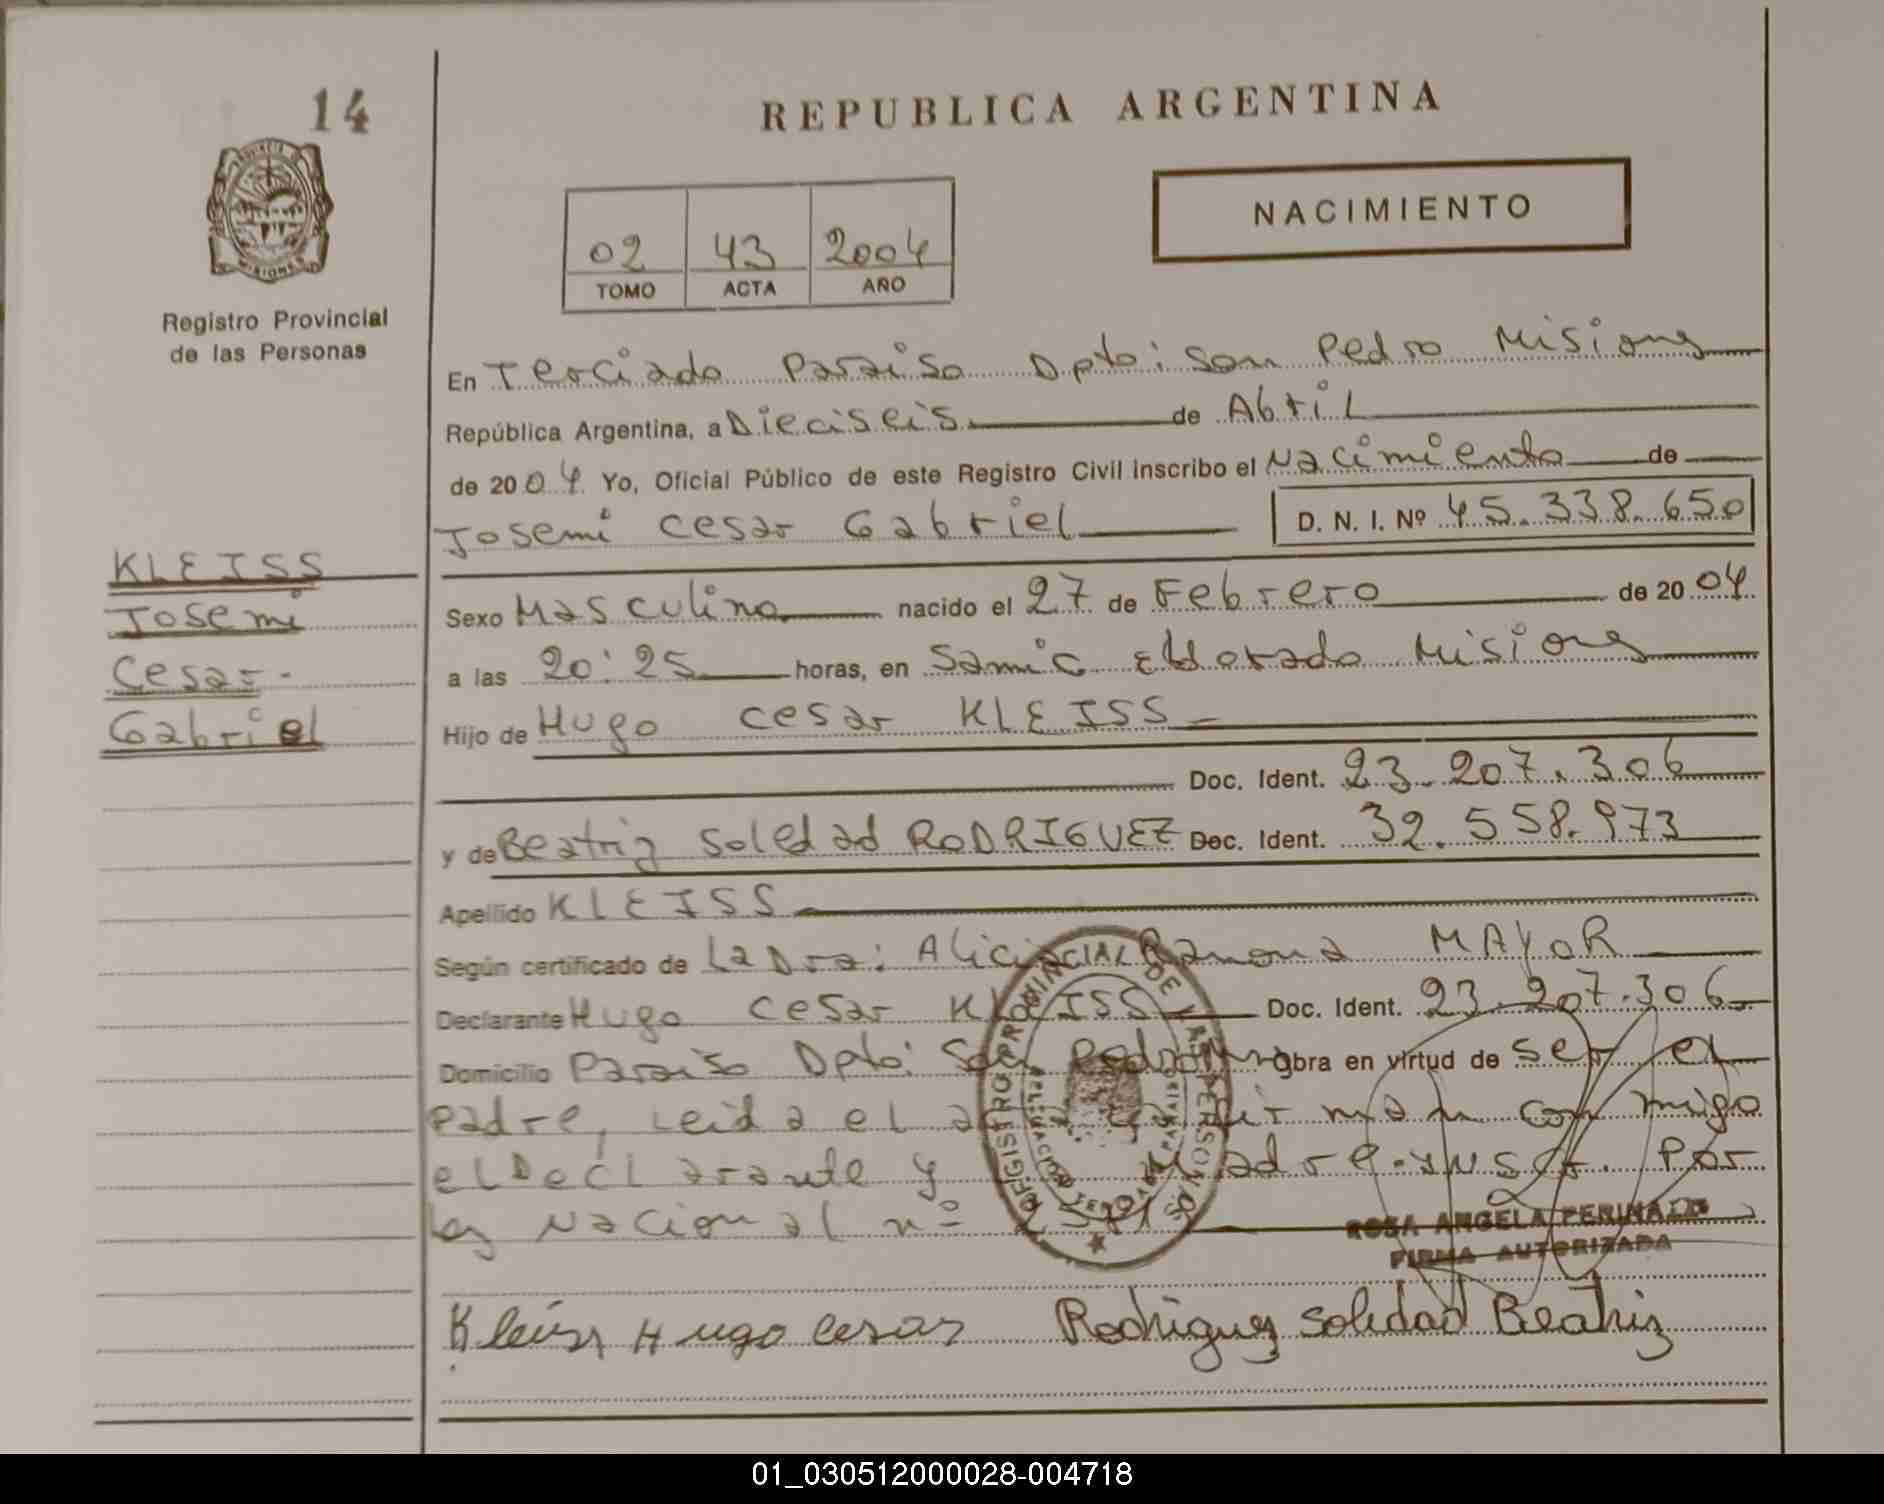 14
REPUBLICA ARGENTINA
PROVINCIA DE
MISIONES
Registro Provincial
de las Personas
NACIMIENTO
02 43 2004
TOMO ACTA AÑO
En Terciado Paraiso Dpto: San Pedro Misiones
República Argentina, a Dieciseis de Abril
de 2004 Yo, Oficial Público de este Registro Civil inscribo el Nacimiento de
Josemi Cesar Gabriel D. N. I. Nº 45.338.650
KLEISS
Josemi
Cesar-
Gabriel
Sexo Masculino nacido el 27 de Febrero de 2004
a las 20:25 horas, en Samic Eldorado Misiones
Hijo de Hugo Cesar KLEISS
Doc. Ident. 23.207.306
y de Beatriz Soledad RODRIGUEZ Doc. Ident. 32.558.973
Apellido KLEISS
Según certificado de La Dra: Alicia Ramona MAYOR
Declarante Hugo Cesar KLEISS Doc. Ident. 23.207.306
Domicilio Paraiso Dpto: San Pedro Mnes Obra en virtud de ser el
padre, Leida el acta firman conmigo
el Declarante y madre. Insc. Por
Ley Nacional nº
REGISTRO PROVINCIAL DE LAS PERSONAS
ROSA ANGELA PERINA
FIRMA AUTORIZADA
Kleiss Hugo Cesar Rodriguez Soledad Beatriz
01_030512000028-004718